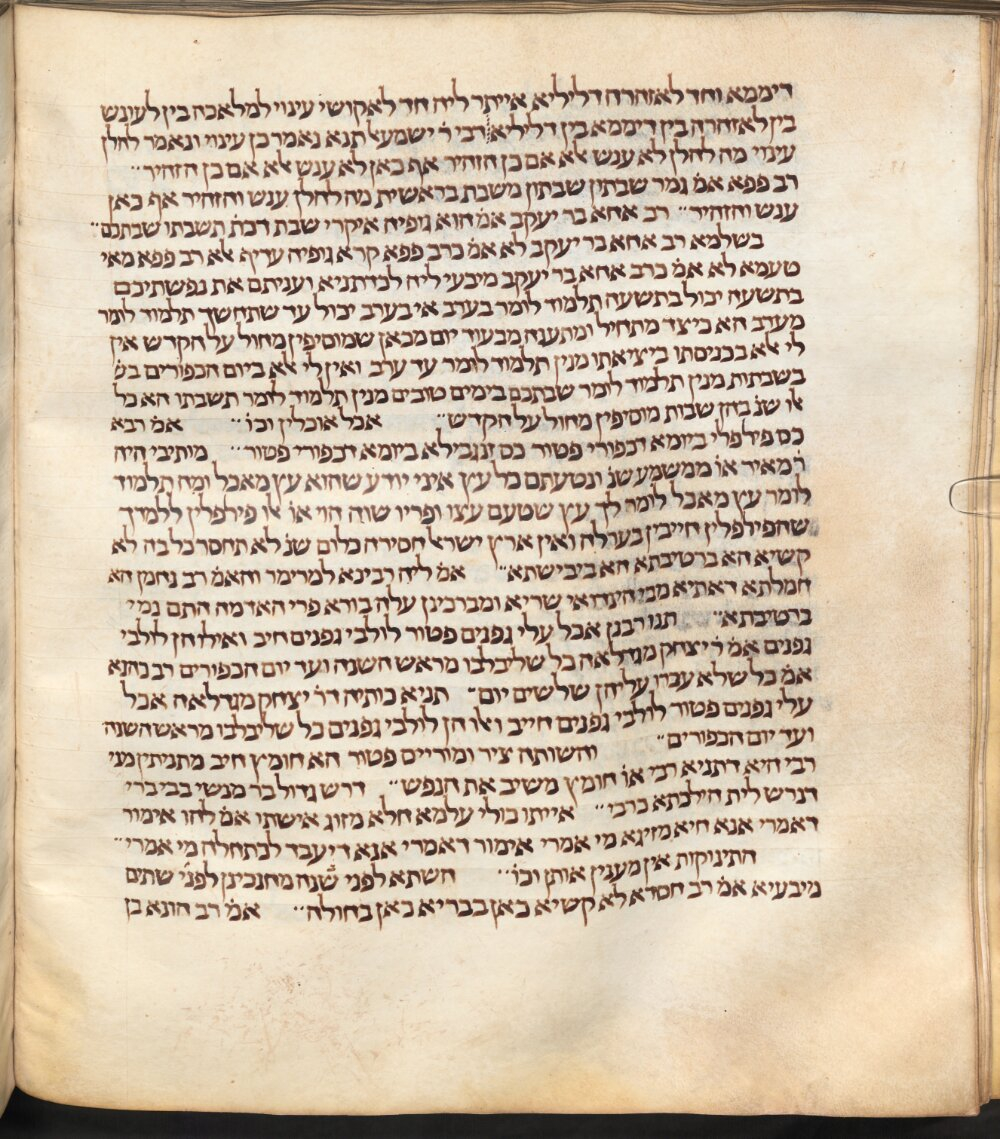 דיממא וחד לאזהרה דליליא אייתר ליה חד לאקושי עינוי למלאכה בין לעונש
בין לאזהרה בין דיממא בין דליליא רבי ר׳ ישמעא׳ תנא נאמר כן עינוי ונאמר להלן
עינוי מה להלן לא ענש אלא אם כן הזהיר אף כאן לא ענש אלא אם כן הזהיר״
רב פפא אמ׳ גמר שבתון שבתון משבת בראשית מה להלן ענש והזהיר אף כאן
ענש והזהיר״ רב אחא בר יעקב אמ׳ הוא גופיה איקרי שבת דכת׳ תשבתו שבתכם״
בשלמא רב אחא בר יעקב לא אמ׳ כרב פפא קרא גופיה עדיף אלא רב פפא מאי
טעמא לא אמ׳ כרב אחא בר יעקב מיבעי ליה לכדתניא ועניתם את נפשתיכם
בתשעה יכול בתשעה תלמוד לומר בערב אי בערב יכול עד שתחשך תלמוד לומר
מערב הא כיצד מתחיל ומתענה מבעוד יום מכאן שמוסיפין מחול על הקדש אין
לי אלא בכניסתו ביציאתו מנין תלמוד לומר עד ערב ואין לי אלא ביום הכפורים בש׳
בשבתות מנין תלמוד לומר שבתכם בימים טובים מנין תלמוד לומר תשבתו הא כל
או שנ׳ בהן שבות מוסיפין מחול על הקדש״ אבל אוכלין וכו׳״ אמ׳ רבא
כס פילפלי ביומא דכפורי פטור כס זנגבילא ביומא דכפורי פטור״ מותיבי היה
ר׳ מאיר או׳ ממשמע שנ׳ ונטעתם כל עץ איני יודע שהוא עץ מאכל ומה תלמוד
לומר עץ מאכל לומר לך עץ שטעם עצו ופריו שוה הוי או׳ אלו פילפלין ללמדך
שהפילפלין חייבין בערלה ואין ארץ ישראל חסירה כלום שנ׳ לא תחסר כל בה לא
קשיא הא ברטיבתא הא ביבישתא״ אמ׳ ליה רבינא למרימר והאמ׳ רב נחמן הא
המלתא דאתיא מבי הינדואי שריא ומברכינן עלה בורא פרי האדמה התם נמי
ברטיבתא״ תנו רבנן אכל עלי גפנים פטור לולבי גפנים חיב ואילו הן לולבי
גפנים אמ׳ ר׳ יצחק מגדלאה כל שליבלבו מראש השנה ועד יום הכפורים רב כהנא
אמ׳ כל שלא עברו עליהן שלשים יום״ תניא כותיה דר׳ יצחק מגדלאה אכל
עלי גפנים פטור לולבי גפנים חייב ואלו הן לולבי גפנים כל שליבלבו מראש השנה
ועד יום הכפורים״ והשותה ציר ומורייס פטור הא חומץ חיב מתניתין מני
רבי היא דתניא רבי או׳ חומץ משיב את הנפש״ דרש גדול בר מנשי בביברי
דנרש לית הילכתא כרבי״ אייתו כולי עלמא חלא מזוג אישתו אמ׳ להו אימור
דאמרי אנא חיא מזיגא מי אמרי אימור דאמרי אנא דיעבד לכתחלה מי אמרי״
התינוקות אין מענין אותן וכו׳״ השתא לפני שנה מחנכינן לפני שתים
מיבעיא אמ׳ רב חסדא לא קשיא כאן בבריא כאן בחולה״ אמ׳ רב הונא בן